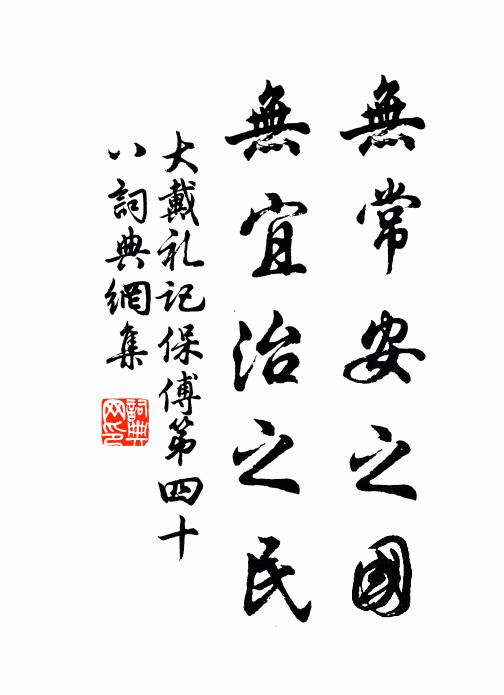 無常安之國
無宜治之民
大戴礼記保傅第四十
八詞典網集
詞典
网印